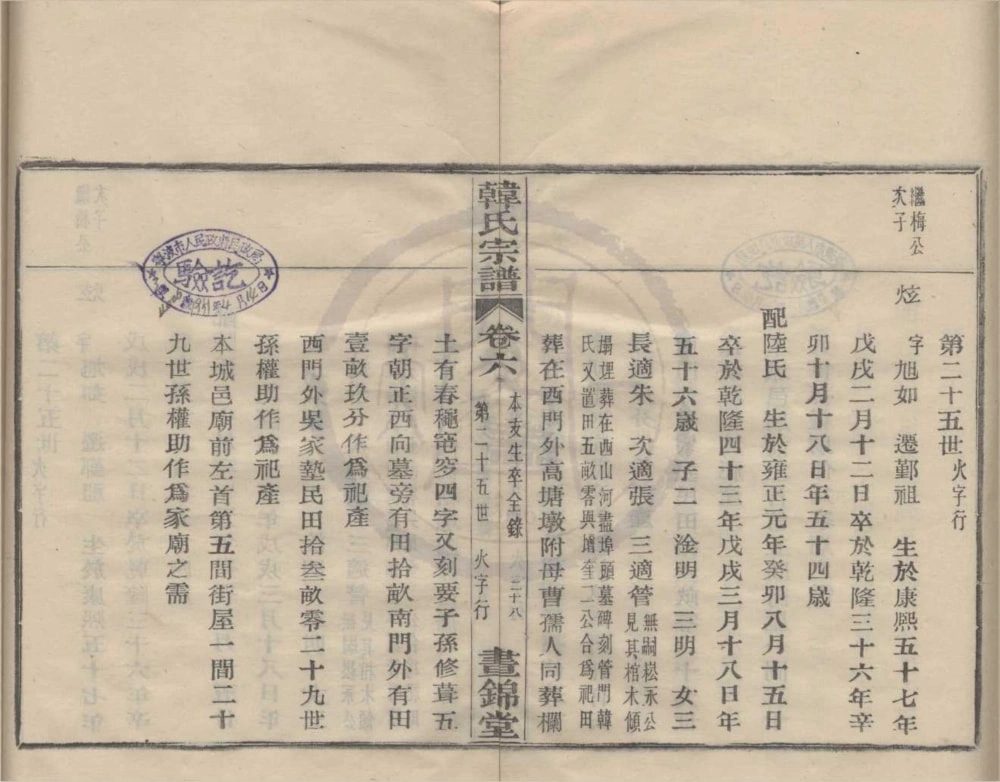 繼梅公
次子
第二十五世火字行
炫 字旭如 遷鄞祖 生於康熙五十七年
戊戌二月十二日卒於乾隆三十六年辛
卯十月十八日年五十四歲
配陸氏 生於雍正元年癸卯八月十五日
卒於乾隆四十三年戊戌三月十八日年
五十六歲 子二 淦明 三明 女三
長適朱 次適張 三適管 無嗣崧承公
見其棺木傾
塌埋葬在西山河盡埠頭墓碑刻管門韓
氏又置田五畝零與增奎二公合爲祀田
葬在西門外高塘墩附母曹孺人同葬欄
土有春穐窀穸四字又刻要子孫修葺五
字朝正西向墓旁有田拾畝南門外有田
壹畝玖分作爲祀產
西門外吳家墊民田拾叁畝零二十九世
孫權助作爲祀產
本城邑廟前左首第五間街屋二間二十
九世孫權助作爲家廟之需
韓氏宗譜 卷六 本支生卒全錄
第二十五世 火字行 三十八
晝錦堂
寧波市人民政府民政局
驗訖